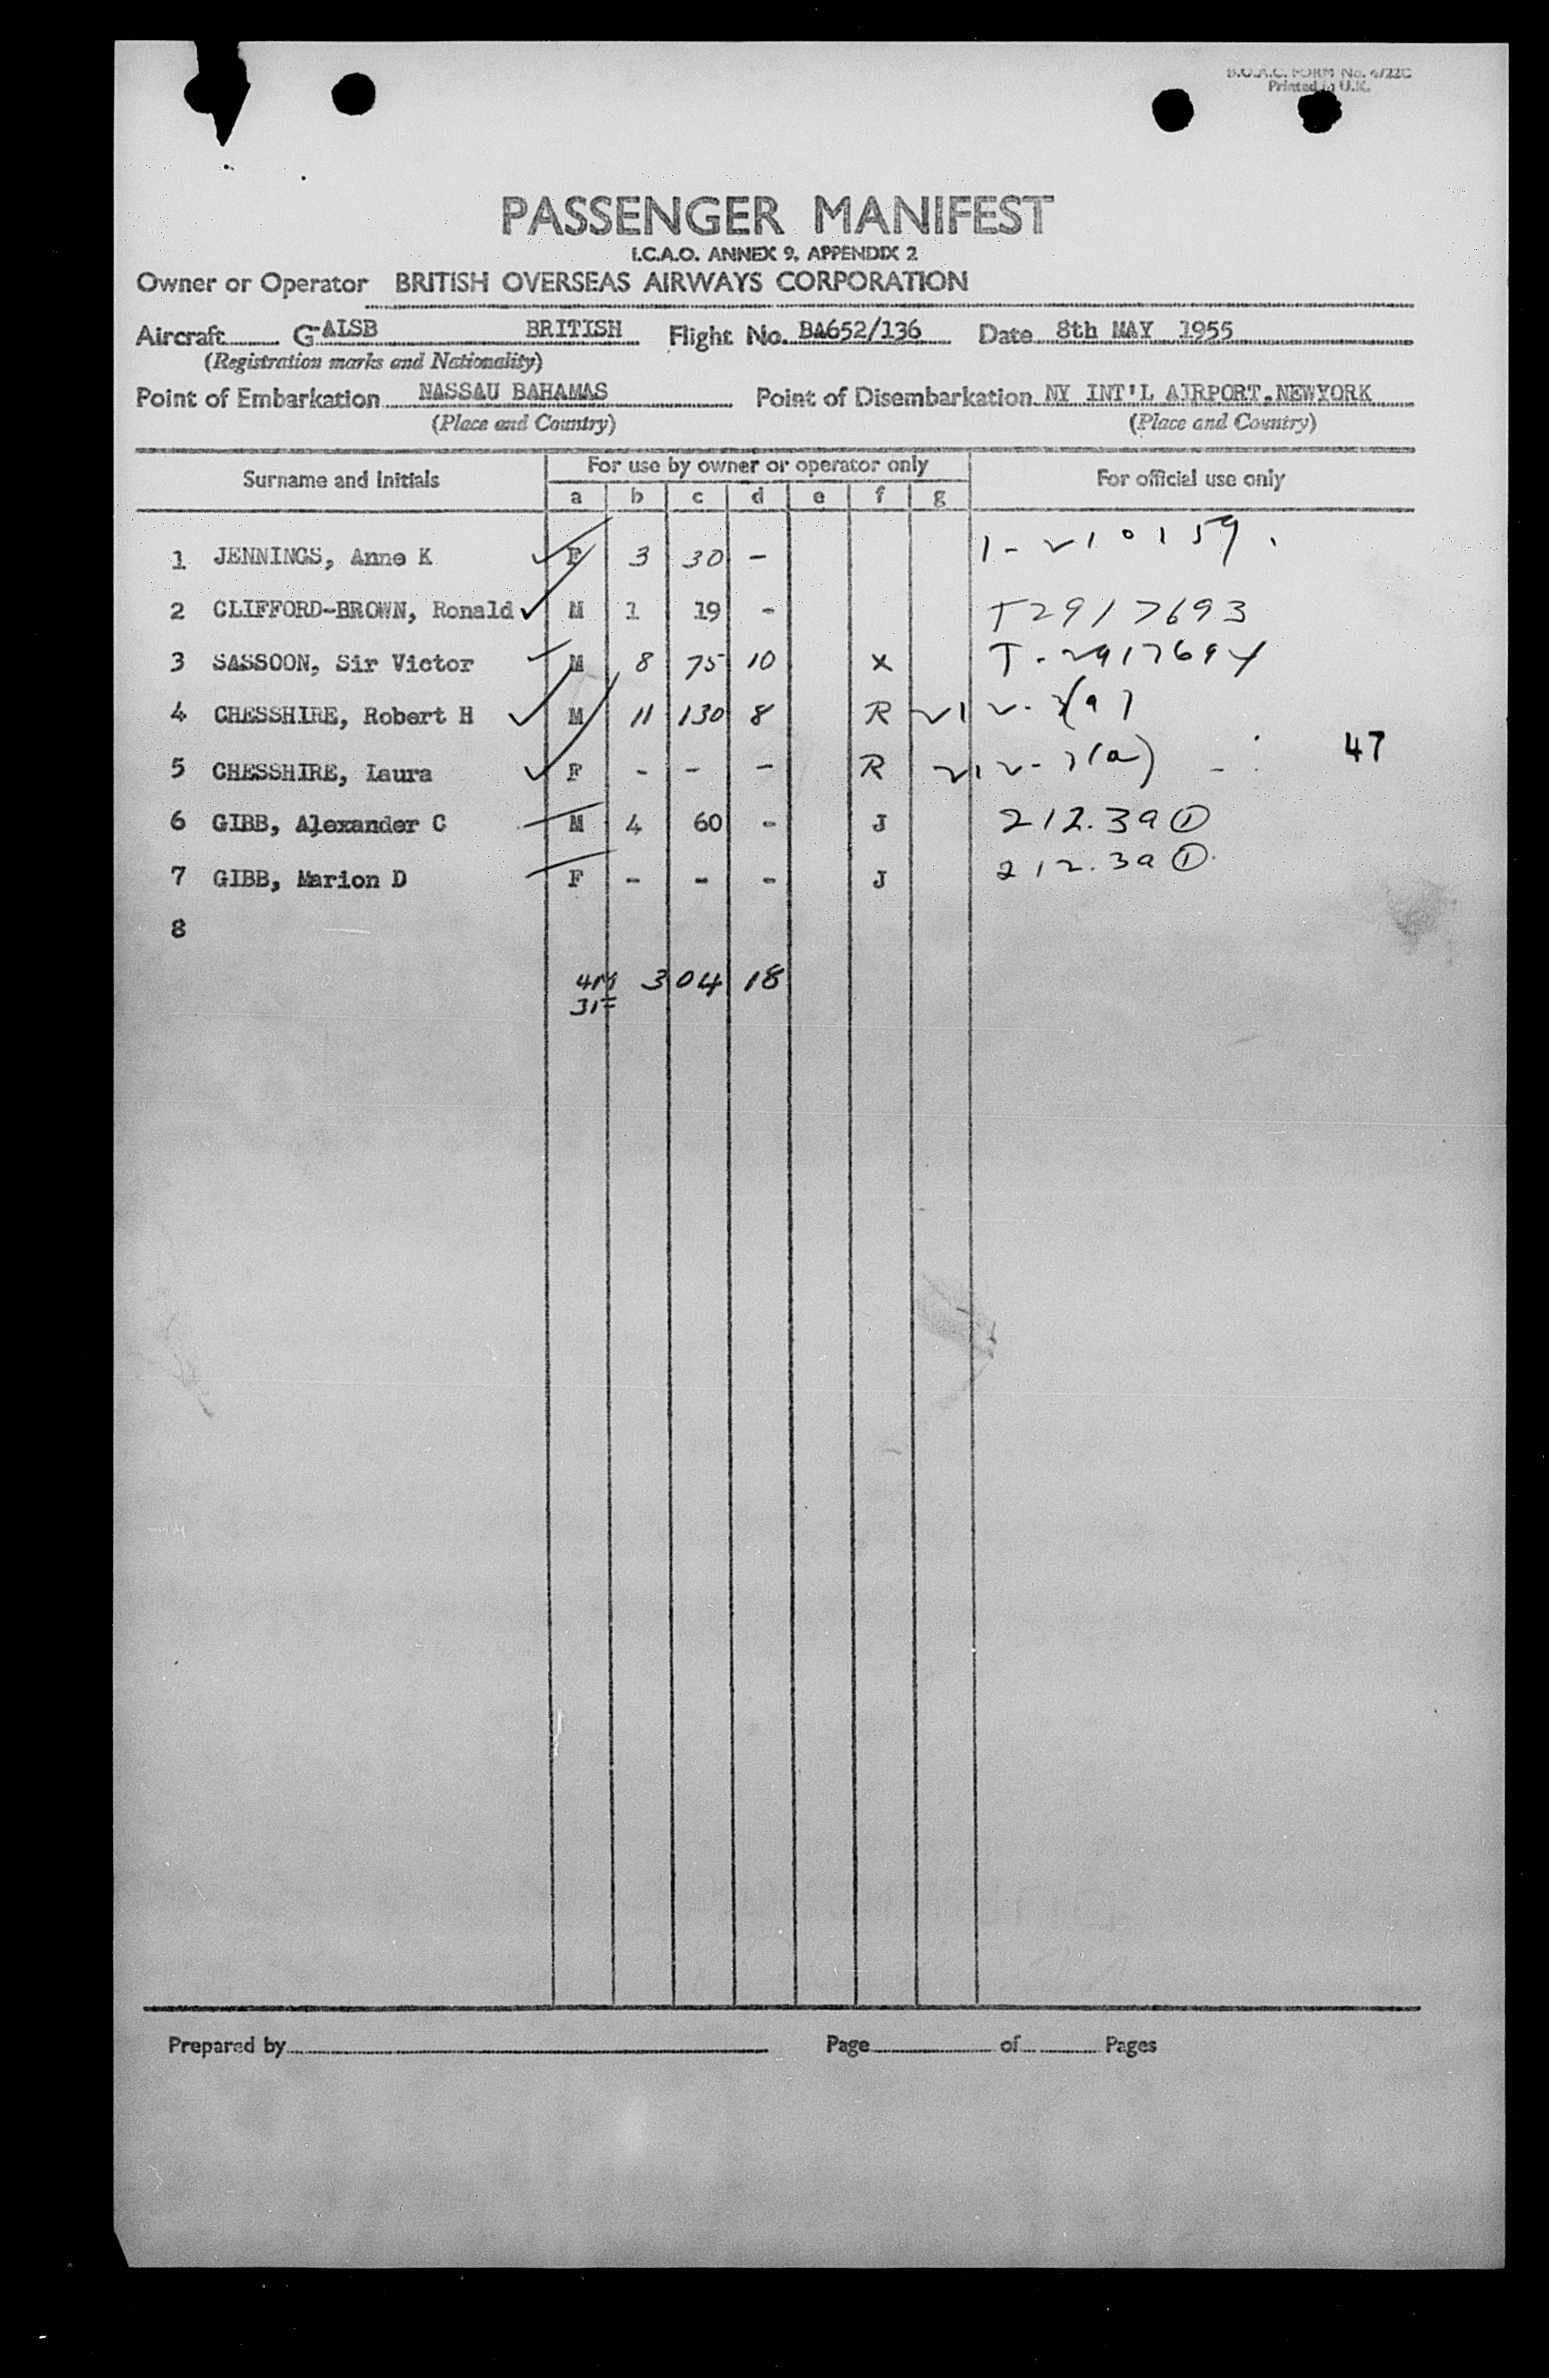 B.O.A.C. FORM No. 6/22C
Printed in U.K.
PASSENGER MANIFEST
I.C.A.O. ANNEX 9, APPENDIX 2
Owner or Operator BRITISH OVERSEAS AIRWAYS CORPORATION
Aircraft G-ALSB BRITISH Flight No. BA652/136 Date 8th MAY 1955
(Registration marks and Nationality)
Point of Embarkation NASSAU BAHAMAS Point of Disembarkation NY INT'L AIRPORT.NEWYORK
(Place and Country) (Place and Country)
Surname and Initials For use by owner or operator only For official use only
a b c d e f g
1 JENNINGS, Anne K F 3 30 - 1-210159.
2 CLIFFORD-BROWN, Ronald M 1 19 - T2917693
3 SASSOON, Sir Victor M 8 75 10 X T-2917694
4 CHESSHIRE, Robert H M 11 130 8 R 212-
5 CHESSHIRE, Laura F - - - R 212- 47
6 GIBB, Alexander C M 4 60 - J 212.3a ①
7 GIBB, Marion D F - - - J 212.3a ①
8
4M 304 18
3F
Prepared by Page of Pages